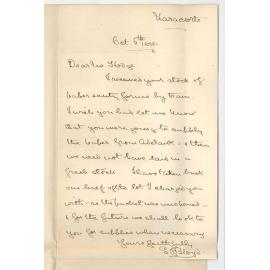 Naracoorte
Oct. 5th 1898
Dear Mr Hodge
I received your stock of
baker sundry forms by train.
I wish you had let me know
that you were going to supply
the baker from Adelaide - & then
we need not have laid in a
fresh stock. I have taken back
one half of the lot I charged you
with - as the packet was unopened -
& for the future we shall look to
you for supplies when necessary
Yours faithfully